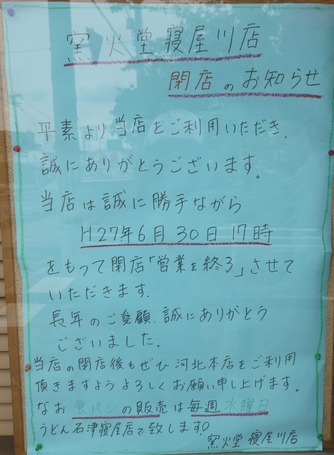 窯火堂寝屋川店
閉店のお知らせ
平素より当店をご利用いただき、
誠にありがとうございます。
当店は誠に勝手ながら
H27年6月30日17時
をもって閉店「営業を終了」させて
いただきます。
長年のご愛顧、誠にありがとう
ございました。
当店の閉店後もぜひ河北本店をご利用
頂きますようよろしくお願い申し上げます。
なお 食パンの販売は毎週 水曜日
うどん石津寝屋店で致します。
窯火堂 寝屋川店